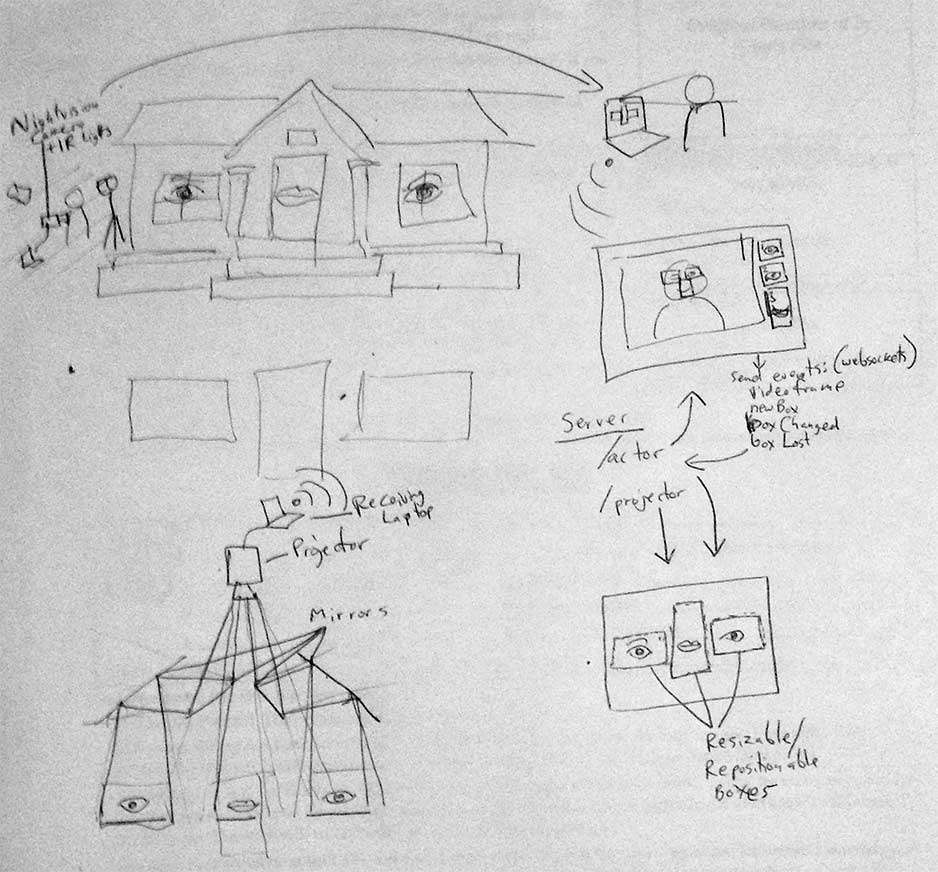 Nightvision
Camera
+ IR Lights
send events: (websockets)
videoframe
newBox
box Changed
box Lost
Server
/actor
/projector
Receiving
Laptop
Projector
Mirrors
Resizable/
Repositionable
Boxes